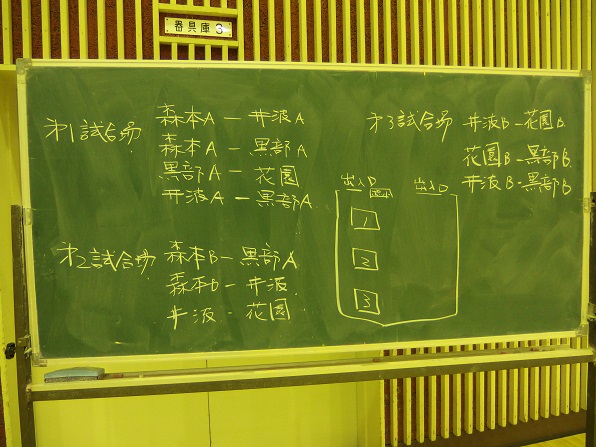 器具庫 3
オ1試合場
森本A - 井波A
森本A - 黒部A
黒部A - 花園
井波A - 黒部A
オ2試合場
森本B - 黒部A
森本b - 井波
井波 - 花園
オ3試合場
井波B - 花園B
花園B - 黒部B
井波B - 黒部B
出入口
出入口
1
2
3